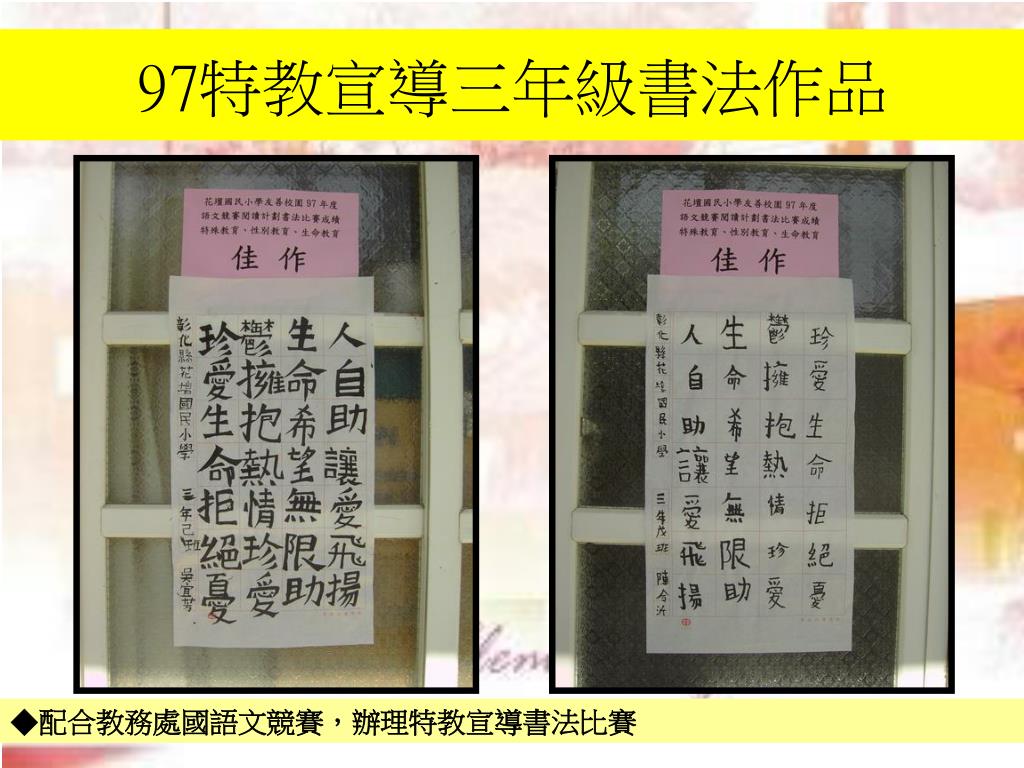 97特教宣導三年級書法作品
花壇國民小學友善校園 97 年度
語文競賽閱讀計劃書法比賽成績
特殊教育、性別教育、生命教育
佳 作
人自助讓愛飛揚
生命希望無限助
鬱擁抱熱情珍愛
珍愛生命拒絕憂
彰化縣花壇國民小學 三年己班 吳宜芳
花壇國民小學友善校園 97 年度
語文競賽閱讀計劃書法比賽成績
特殊教育、性別教育、生命教育
佳 作
珍愛生命拒絕憂
鬱擁抱熱情珍愛
生命希望無限助
人自助讓愛飛揚
彰化縣花壇國民小學 三年戊班
◆配合教務處國語文競賽，辦理特教宣導書法比賽